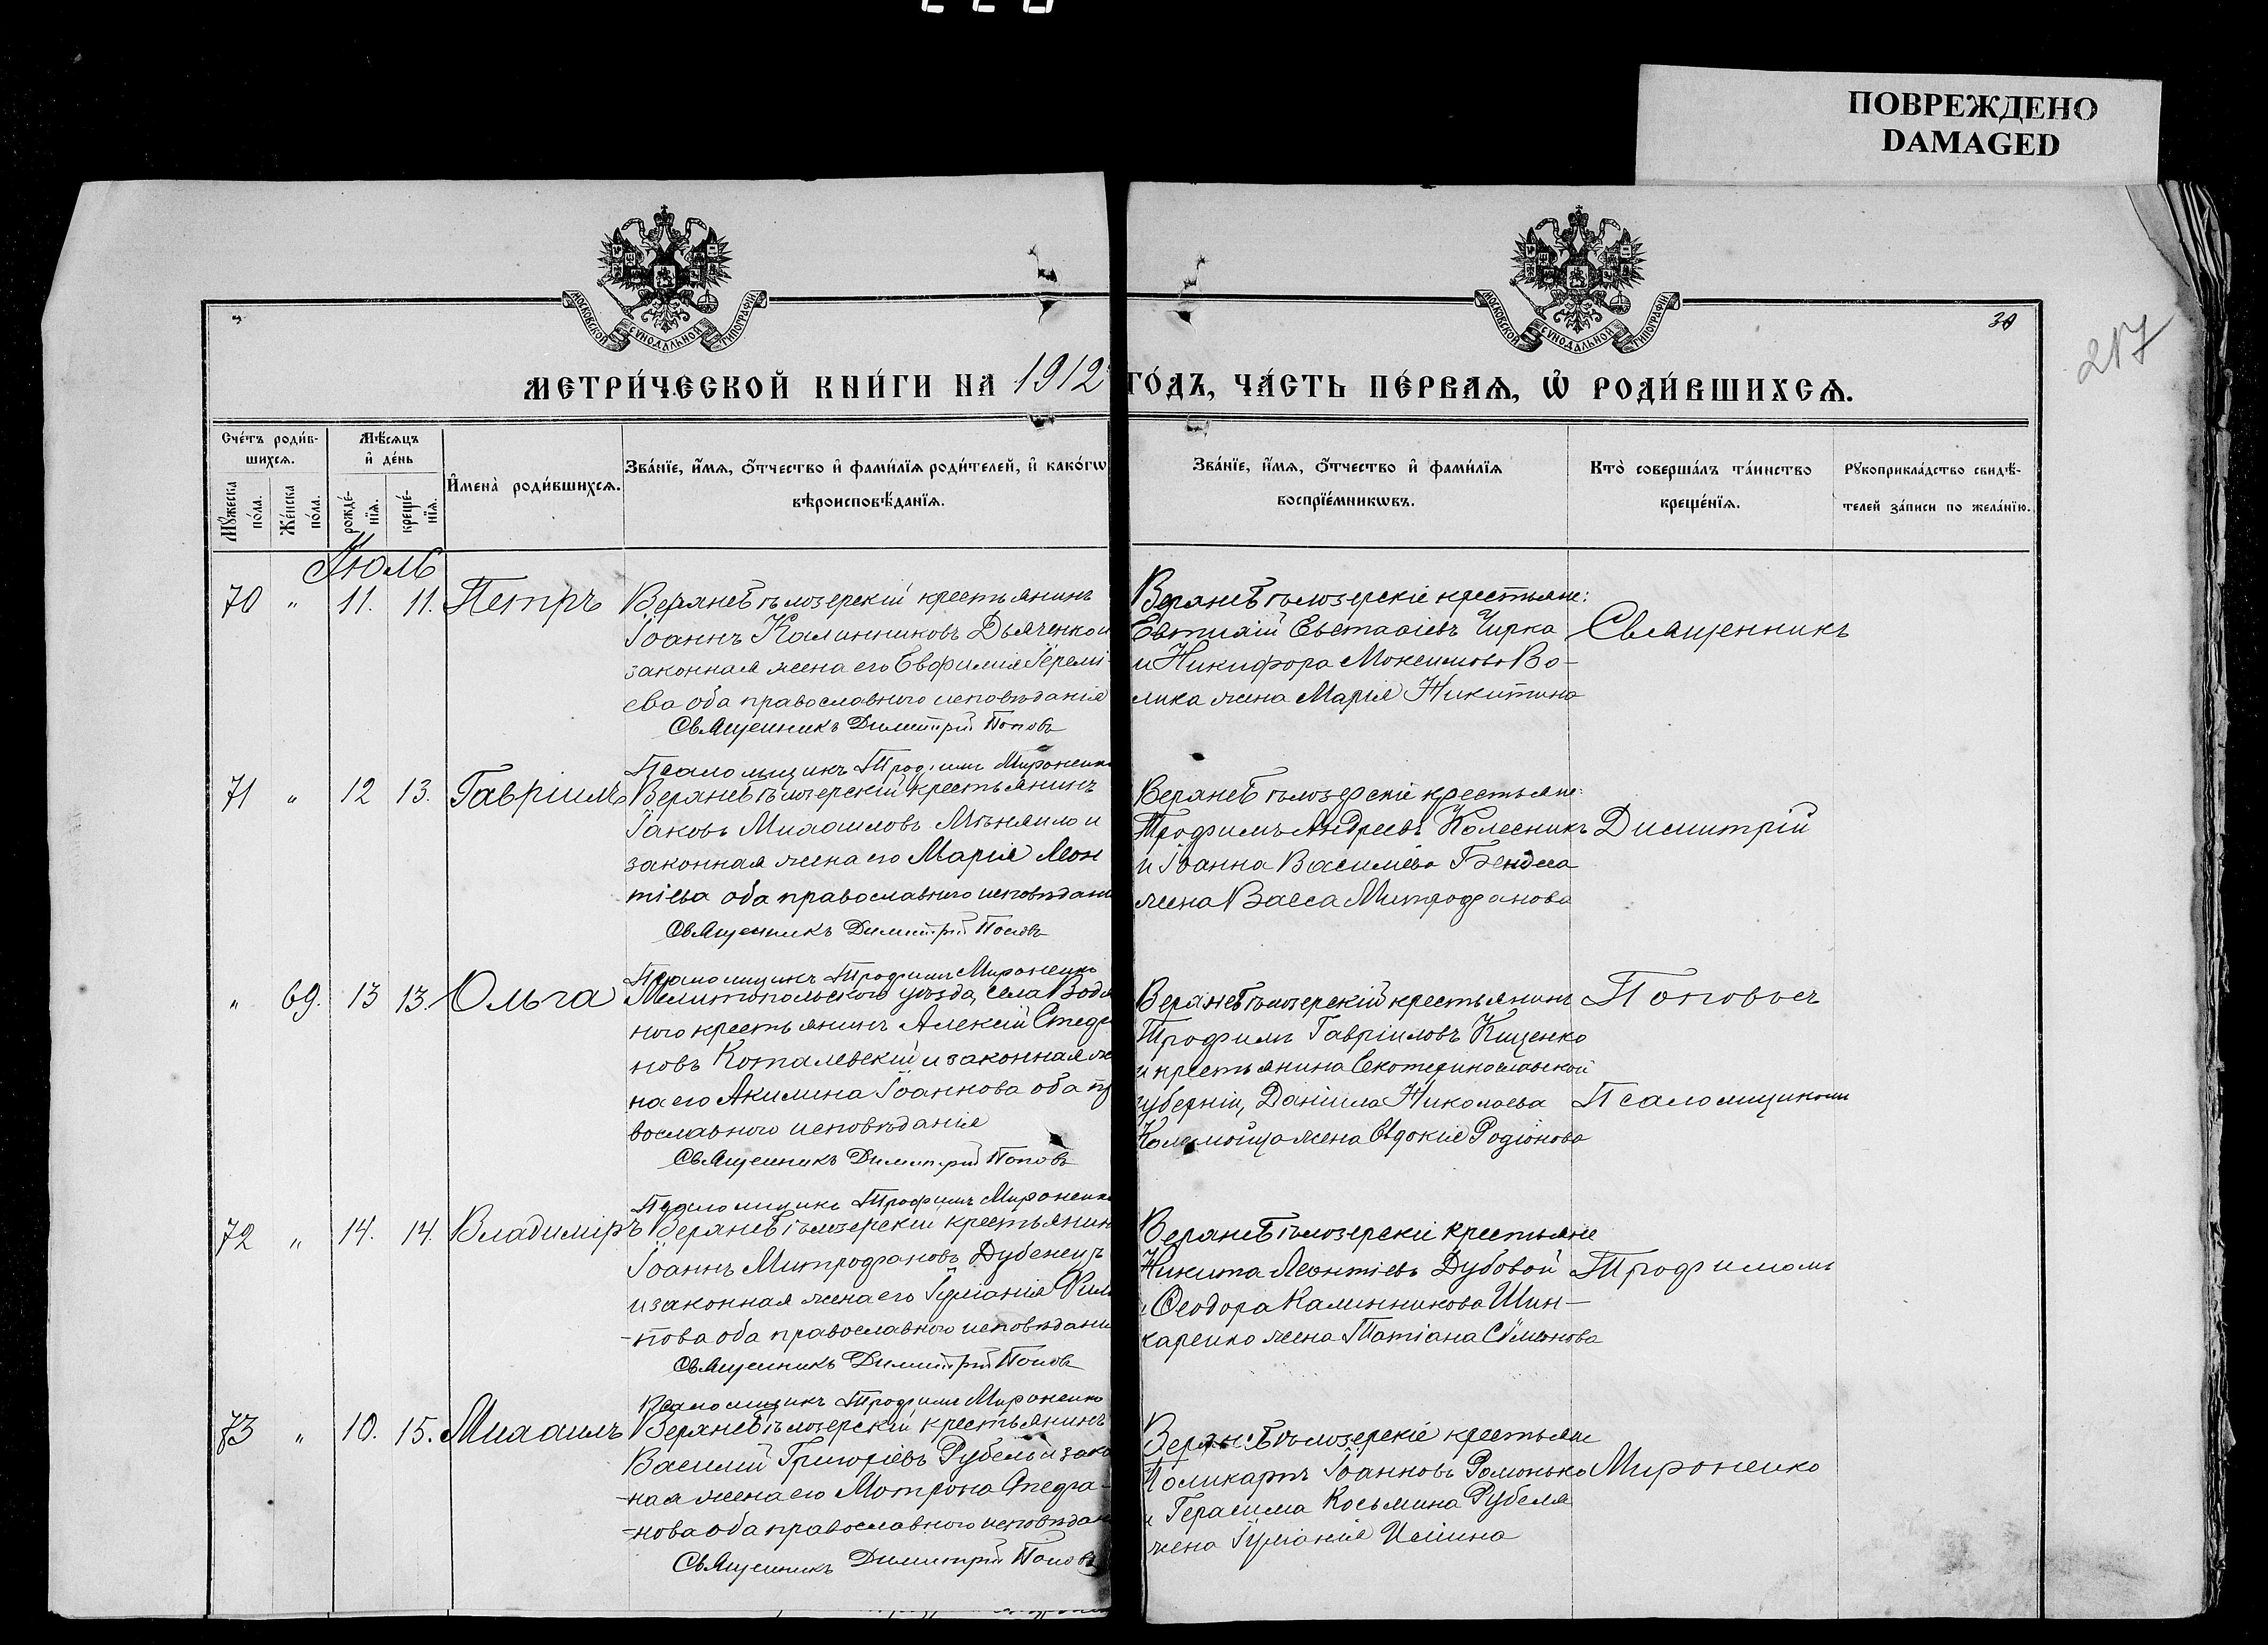 ПОВРЕЖДЕНО
DAMAGED
МОСКОВСКОЙ СѴНОДАЛЬНОЙ ТИПОГРАФІИ
МОСКОВСКОЙ СѴНОДАЛЬНОЙ ТИПОГРАФІИ
30
217
МЕТРИ́ЧЕСКОЙ КНИ́ГИ НА 1912 ГО́ДЪ, ЧА́СТЬ ПЕ́РВАѦ, Ѡ҆ РОДИ́ВШИХСѦ.
Счéтъ роди́в-
шихсѧ.
Мꙋ́жеска по́ла.
Же́нска по́ла.
Мѣ́сѧцъ
и҆ де́нь
рожде́-нїѧ.
креще́-нїѧ.
И҆мена̀ роди́вшихсѧ.
Зва́нїе, и҆́мѧ, ѻ҆́тчество и҆ фами́лїѧ роди́телей, и҆ како́гѡ
вѣроисповѣ́данїѧ.
Зва́нїе, и҆́мѧ, ѻ҆́тчество и҆ фами́лїѧ
воспрїе́мникѡвъ.
Кто̀ соверша́лъ та́инство
креще́нїѧ.
Рꙋкоприкла́дство свидѣ́-
телей за́писи по жела́нїю.
Іюль
70 " 11. 11. Петръ
Верхнебѣлозерскій крестьянинъ
Іоаннъ Калинниковъ Дьяченко и
законная жена его Евфимія Іеремі-
ева оба православнаго исповѣданія
Священникъ Димитрій Поповъ
Псаломщикъ Трофимъ Мироненко
Верхнебѣлозерскіе крестьяне:
Евстаѳіевъ Чирка
и Никифора Максимова Во-
лика жена Марія Никитина
Священникъ
71 " 12 13. Гавріилъ
Верхнебѣлозерскій крестьянинъ
Іаковъ Михаиловъ Мѣняило и
законная жена его Марія Леон
тіева оба православнаго исповѣдані
Священникъ Димитрій Поповъ
Псаломщикъ Трофимъ Мироненко
Верхнебѣлозерскіе крестьяне:
Трофимъ Андреевъ Колесникъ
и Іоанна Васильева Бендеса
жена Васса Митрофанова
Димитрій
" 69. 13 13. Ольга
Мелитопольскаго уѣзда, села Водя
ного крестьянинъ Алексій Стефа
новъ Коталевскій и законная же
на его Акилина Іоаннова оба пр
вославнаго исповѣданія
Священникъ Димитрій Поповъ
Псаломщикъ Трофимъ Мироненко
Верхнебѣлозерскій крестьянинъ
Трофимъ Гавріиловъ Кищенко
и крестьянина Екатеринославской
губерніи, Даніила Николаева
Коломойца жена Евдокія Родіонова
Поповъ съ
Псаломщикомъ
72 " 14. 14. Владиміръ
Верхнебѣлозерскій крестьянин
Іоаннъ Митрофановъ Дубенецъ
и законная жена его Іуліанія Фили
-пова оба православнаго исповѣдані
Священникъ Димитрій Поповъ
Псаломщикъ Трофимъ Мироненко
Верхнебѣлозерскіе крестьяне
Никита Леонтіевъ Дубовой
и Ѳеодора Калинникова Шин-
каренко жена Татіана Симонова
Трофимомъ
73 " 10. 15. Михаилъ
Верхнебѣлозерскій крестьянинъ
Василій Григоріевъ Рубель и зако
-ная жена его Матрона Стефа-
-нова оба православнаго исповѣдан
Священникъ Димитрій Поповъ
Верхнебѣлозерскіе крестьяне
Поликарпъ Іоанновъ Романько
и Герасима Косьмина Рубеля
жена Іуліанія Исаина
Мироненко